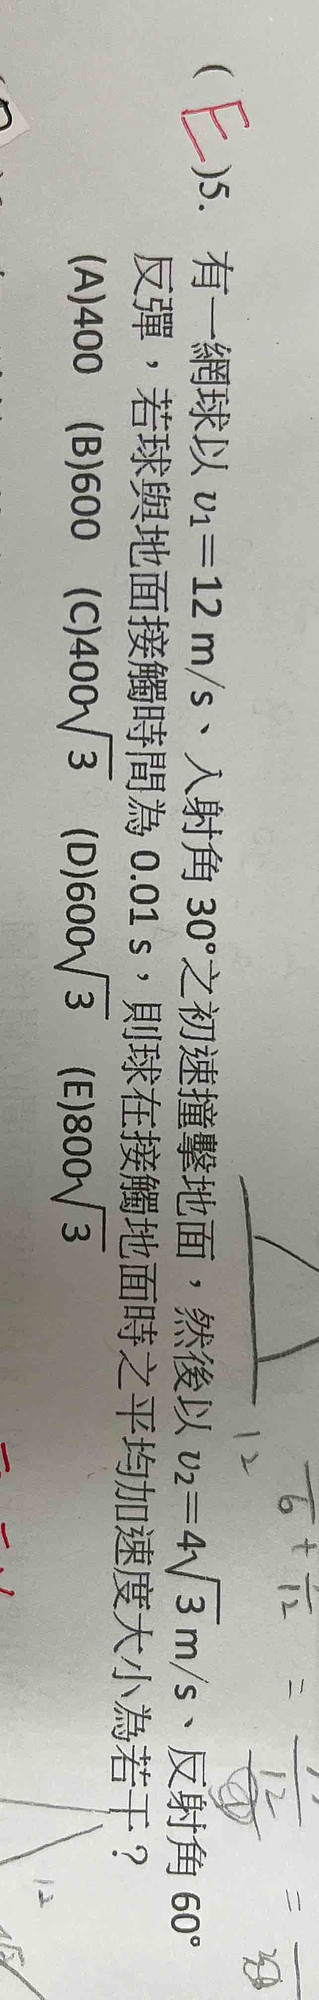 (E)5. 有一網球以 v₁=12 m/s、入射角 30°之初速撞擊地面，然後以 v₂=4√3 m/s、反射角 60°
反彈，若球與地面接觸時間為 0.01 s，則球在接觸地面時之平均加速度大小為若干？
(A)400 (B)600 (C)400√3 (D)600√3 (E)800√3
12
12